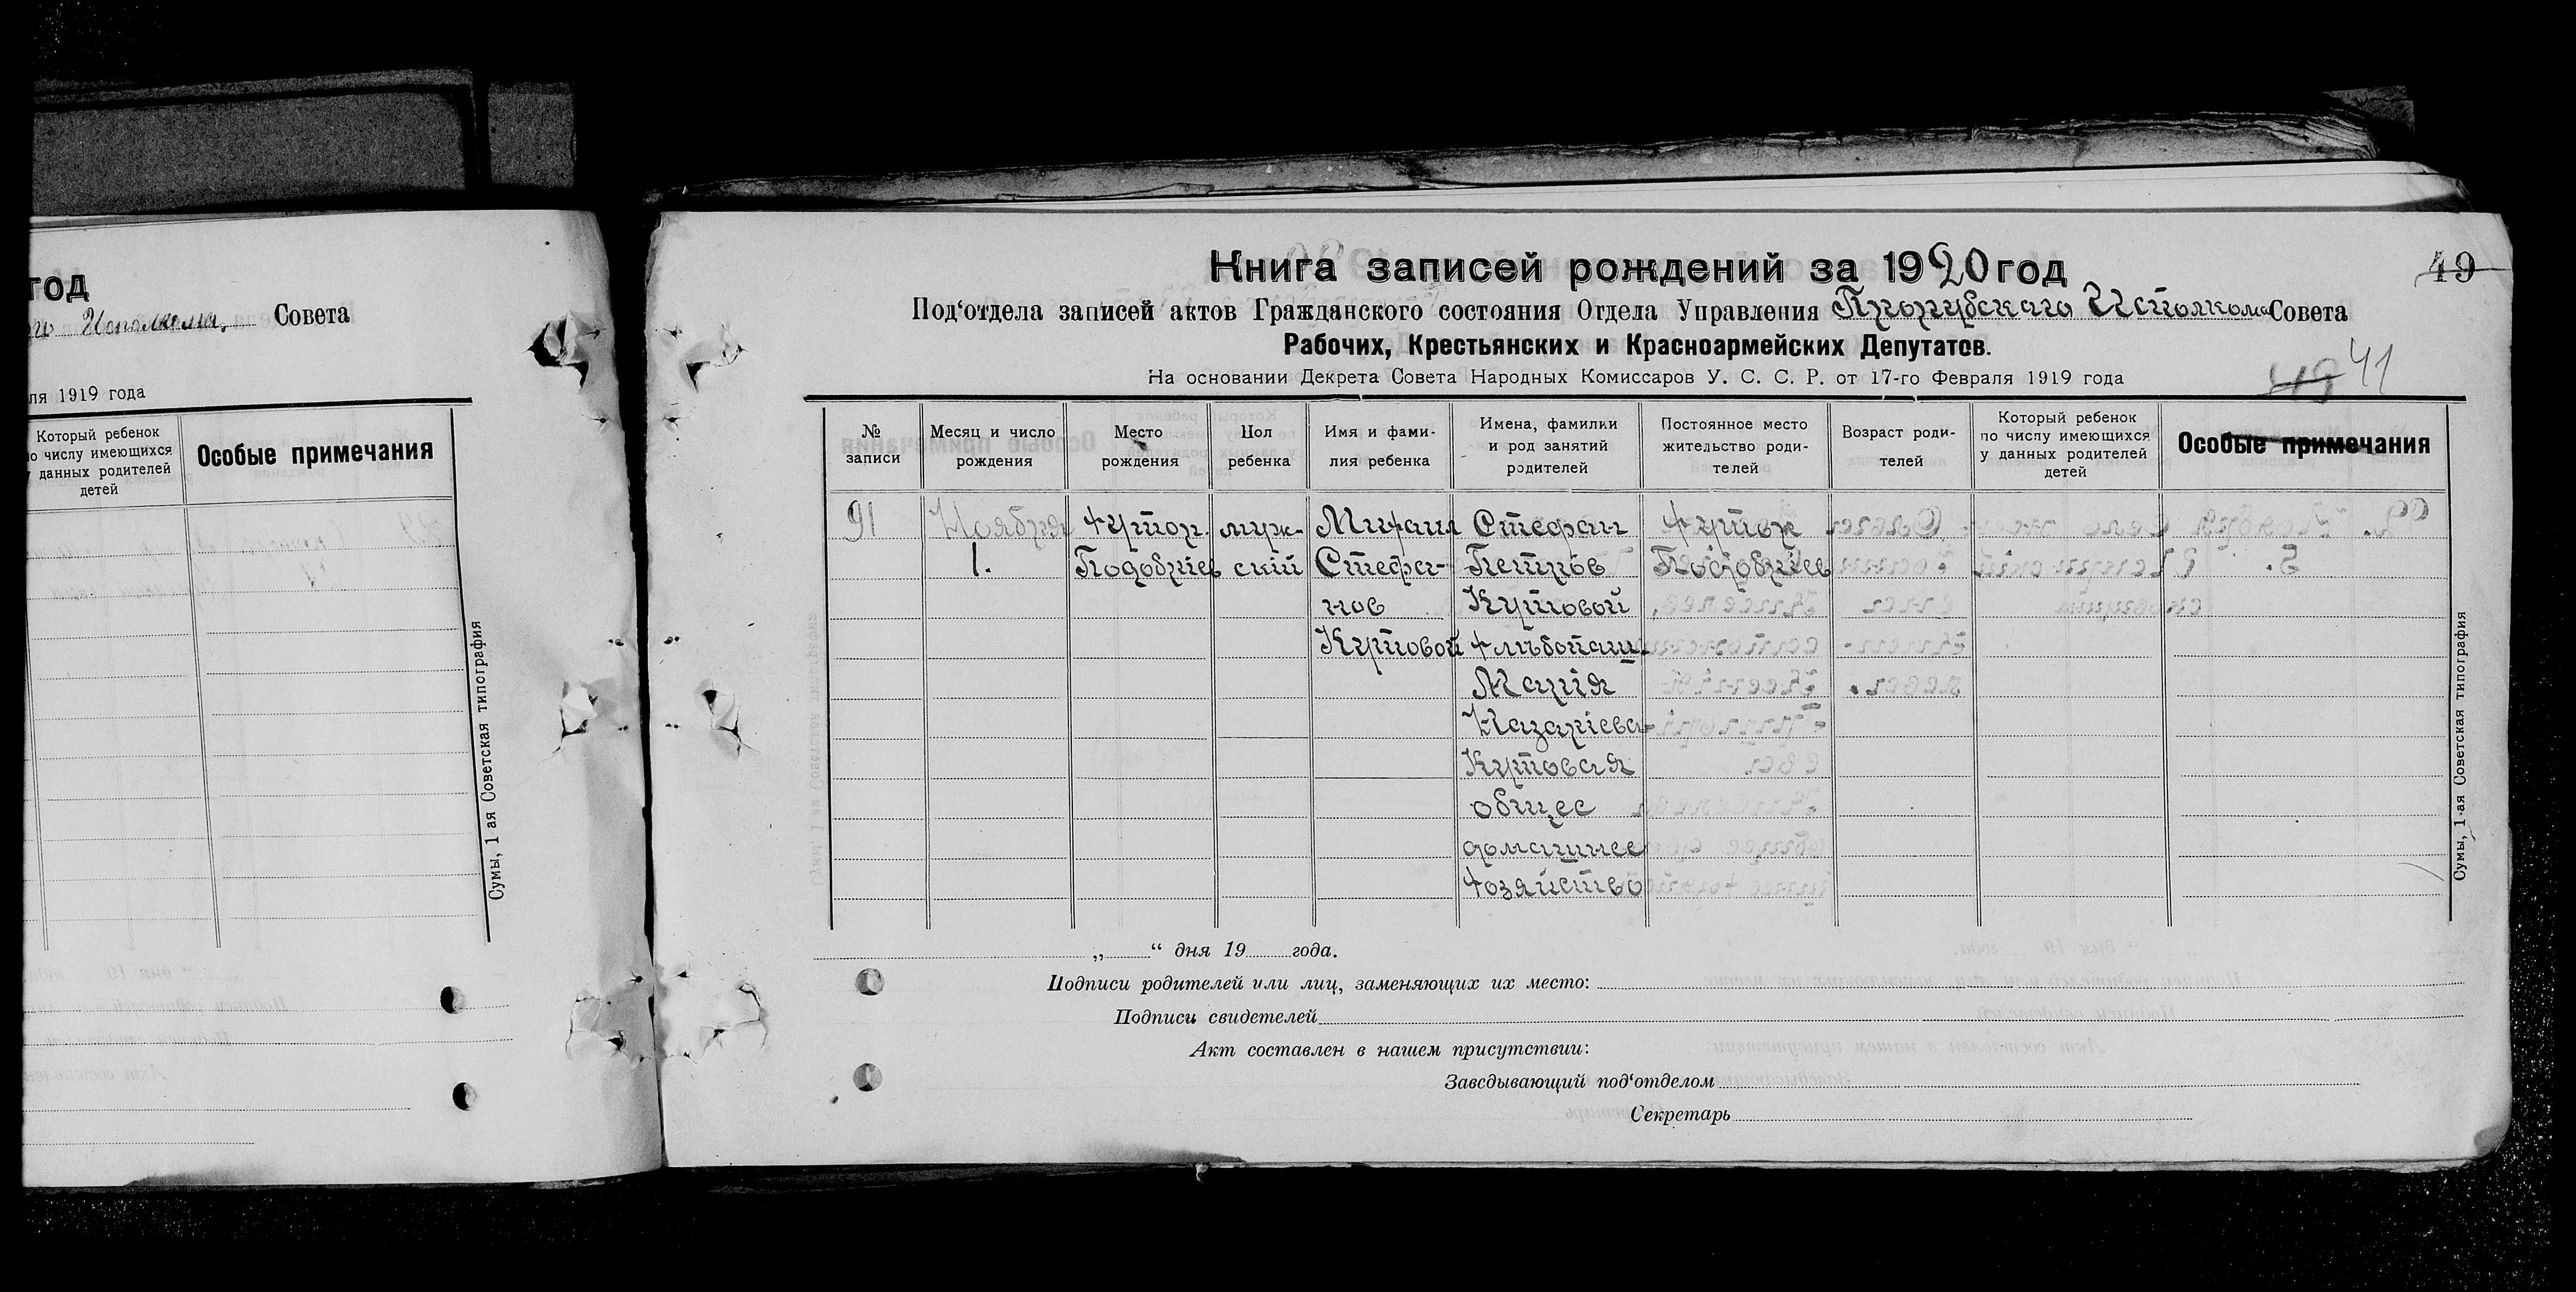 год
го Исполкома, Совета
ля 1919 года
Который ребенок
по числу имеющихся
у данных родителей
детей
Особые примечания
Сумы, 1 ая Советская типография
Книга записей рождений за 1920 год
49
Под‘отдела записей актов Гражданского состояния Отдела Управления Исполкома Совета
Рабочих, Крестьянских и Красноармейских Депутатов.
На основании Декрета Совета Народных Комиссаров У. С. С. Р. от 17-го Февраля 1919 года
41
№
записи
Месяц и число
рождения
Место
рождения
Пол
ребенка
Имя и фами-
лия ребенка
Имена, фамилии
и род занятий
родителей
Постоянное место
жительство роди-
телей
Возраст роди-
телей
Который ребенок
по числу имеющихся
у данных родителей
детей
Особые примечания
91 Ноября хутор. муж- Михаил Стефан хутор
1. Подобриев ский Стефа- Петров Подобриев
нов Кутовой
Кутовой хлѣбопаш.
Марія
Назаріева
Кутовая
общее
домашнее
хозяйство
Сумы, 1-ая Советская типография
„ “ дня 19 года.
Подписи родителей или лиц, заменяющих их место:
Подписи свидетелей
Акт составлен в нашем присутствии:
Заведывающий под‘отделом
Секретарь